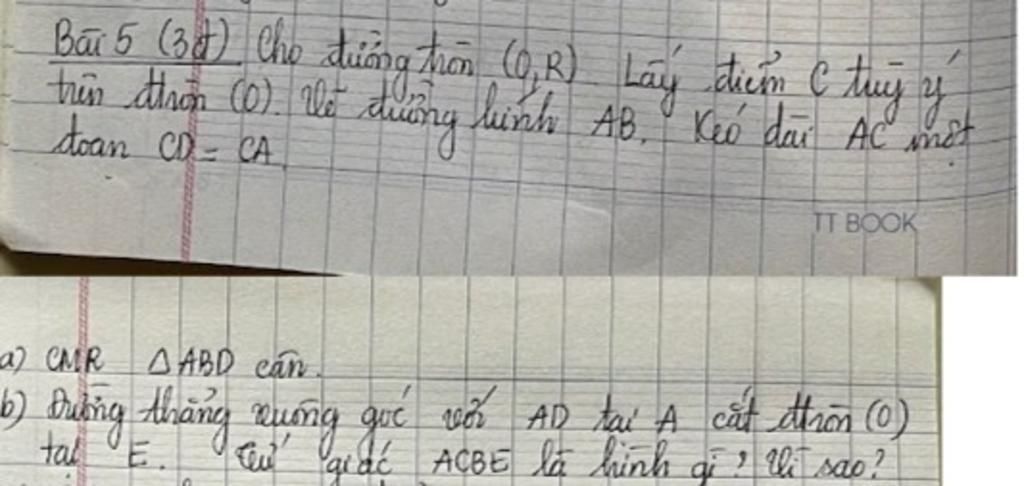 Bài 5 (3đ) Cho đường tròn (O,R) Lấy điểm C tuỳ ý
trên đtròn (O). Vẽ đường kính AB. Kéo dài AC một
đoạn CD = CA
TT BOOK
a) CMR ΔABD cân.
b) Đường thẳng vuông góc với AD tại A cắt đtròn (O)
tại E. Tứ giác ACBE là hình gì? Vì sao?